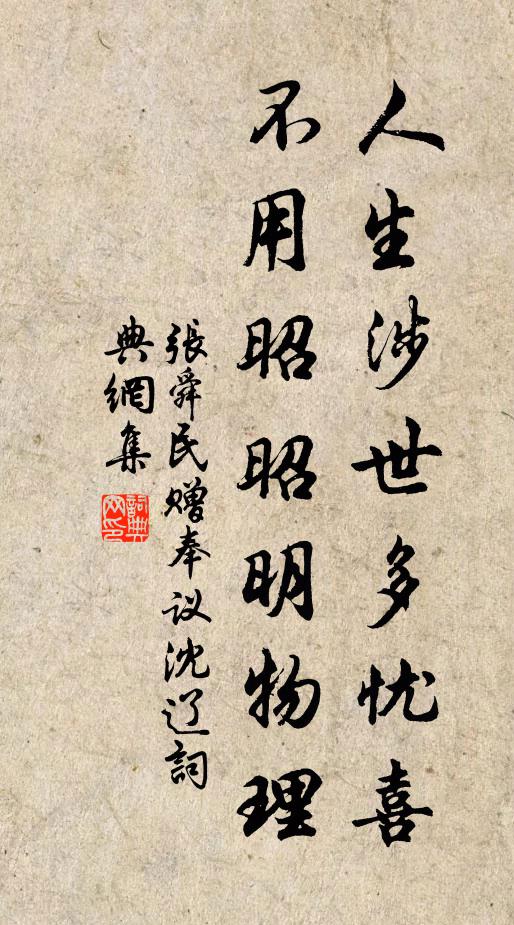 人生涉世多忧喜
不用昭昭明物理
張舜民赠奉议沈辽詞
典網集
詞典網印